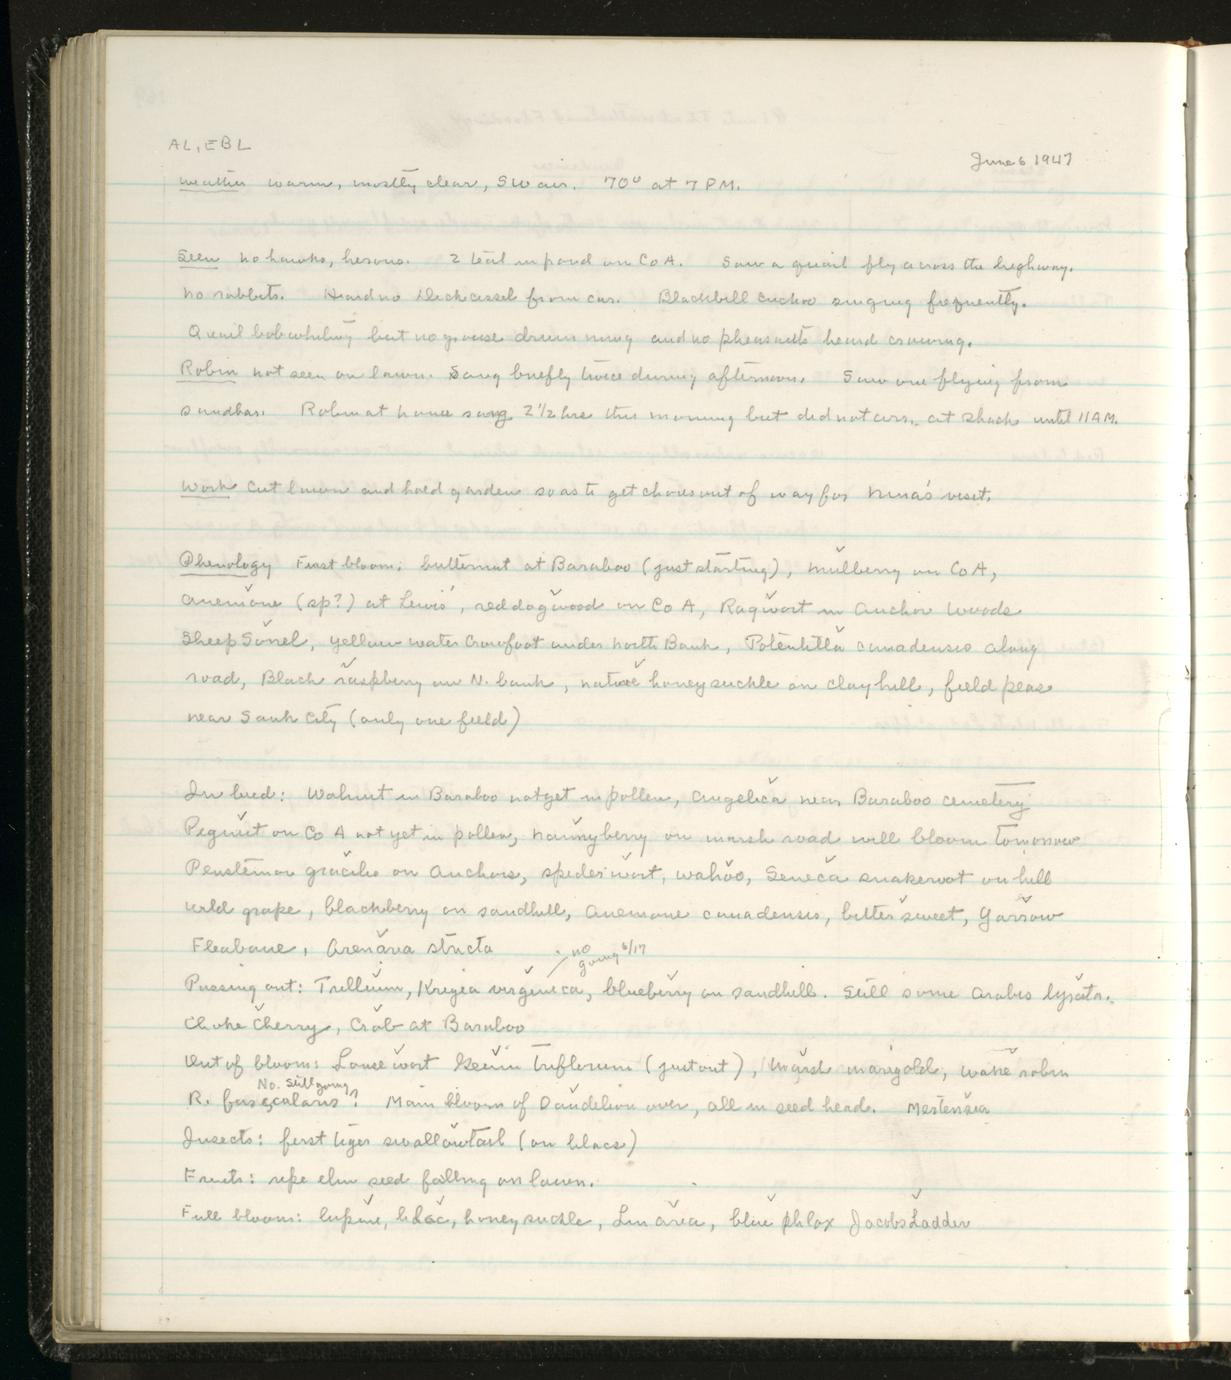 AL, EBL
June 6 1947
Weather warm, mostly clear, SW air. 70° at 7 PM.
Seen no hawks, herons. 2 teal in pond on Co A. Saw a quail fly across the highway.
No rabbits. Heard no Dickcissel from car. Blackbill cuckoo singing frequently.
Quail bobwhiting but no grouse drumming and no pheasants heard crowing.
Robin not seen on lawn. Sang briefly twice during afternoon. Saw one flying from
sandbar. Robin at home sang 2 1/2 hrs this morning but did not arr. at Shack until 11 AM.
Work Cut lawn and hoed garden so as to get chores out of way for Nina's visit.
Phenology First bloom: butternut at Baraboo (just starting), mulberry on Co A,
anemone (sp?) at Lewis', red dogwood on Co A, Ragwort in Anchor Woods
Sheep Sorrel, yellow water Crowfoot under north Bank, Potentilla canadensis along
road, Black raspberry on N. bank, native honeysuckle on clay hill, field peas
near Sauk City (only one field)
In bud: Walnut in Baraboo not yet in pollen, angelica near Baraboo cemetery
Pignut on Co A not yet in pollen, nannyberry on marsh road will bloom tomorrow
Penstemon gracilis on Anchors, spiderwort, wahoo, Seneca snakeroot on hill
wild grape, blackberry on sandhill, Anemone canadensis, bittersweet, Yarrow
Fleabane, Arenaria stricta
no going 6/17
Passing out: Trillium, Krigia virginica, blueberry on sandhill. Still some Arabis lyrata.
Choke Cherry, Crab at Baraboo
Out of bloom: Lousewort Geum Triflorum (just out), Marsh marigold, wake robin
No. Still going
R. fascicularis? Main bloom of Dandelion over, all in seed heads. Mertensia
Insects: first tiger swallowtail (on lilacs)
Fruits: ripe elm seed falling on lawn.
Full bloom: lupine, lilac, honeysuckle, Linaria, blue phlox Jacobs Ladder